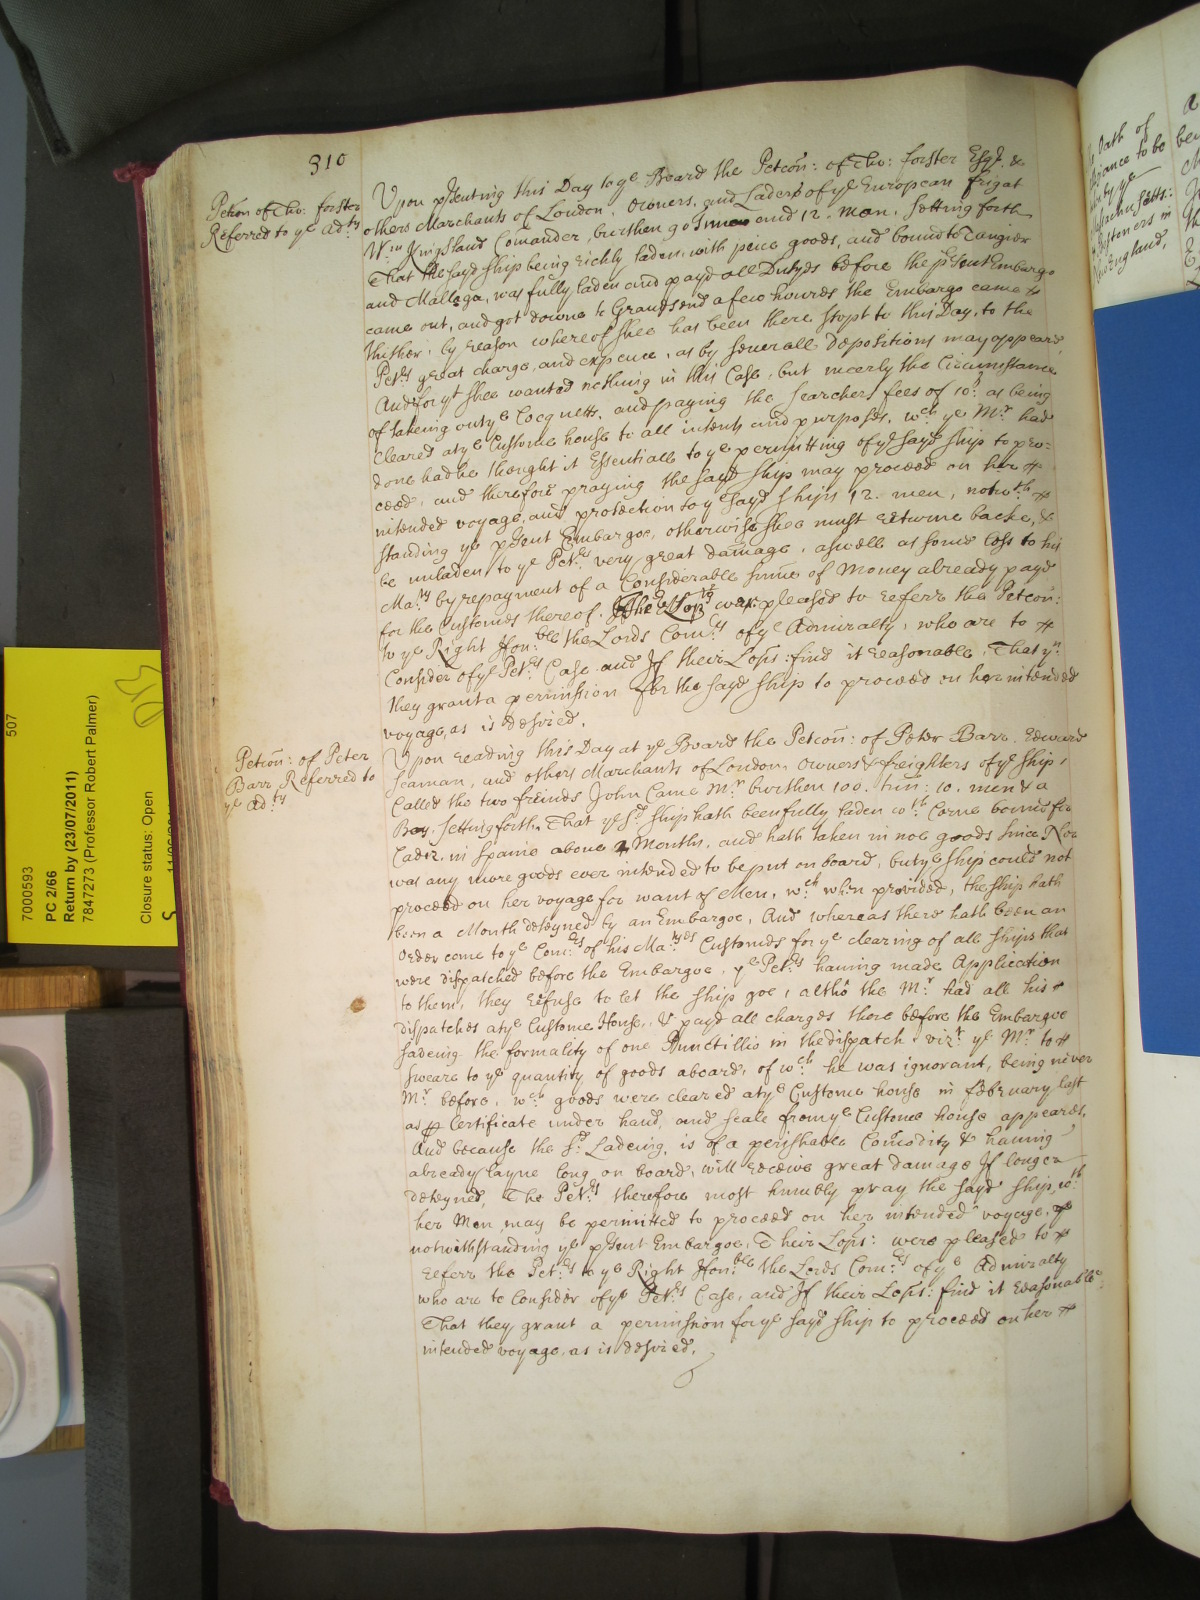 310
Petion of Tho: forster
Referred to ye Adty
Upon pʳsenting this Day to ye Board the Petcon: of Tho: forster Esqr. &
others Marchants of London, Owners, and Laders of ye European frigat
Wm Kingsland Comander, burthen 90 Tunns and 12. Men, Setting forth
That the sayd ship being richly laden, with peice goods, and bound to Tangier
and Mallega, was fully laden and payd all Dutyes before the pʳsent Embargo
came out, and got downe to Gravesend a few houres the Embargo came
thither, by reason whereof shee has been there stopt to this Day, to the
Petrs great charge, and expence, as by severall Depositions may appeare,
And for yt shee wanted nothing in this Case, but meerly the Circumstance
of taking out ye Cocquetts, and paying the Searchers fees of 10s. as being
cleared at ye Custome house to all intents and purposes, wch ye Mr had
done had he thought it Essentiall to ye permitting of ye sayd ship to pro=
ceed, and therefore praying the sayd ship may proceed on her
intended voyage, and protection to ye sayd ships 12. men, notwth
standing ye pʳsent Embargoe, otherwise shee must returne backe, &
be unladen to ye Petrs very great damage, aswell as some loss to his
Maty by repayment of a Considerable sume of Money already payd
for the Customes thereof. Their Lopps were pleased to referr the Petcon:
to ye Right Honble the Lords Comrs of ye Admiralty, who are to
Consider of ye Petrs Case and If their Lopps: find it reasonable, That yn
they grant a permission for the sayd ship to proceed on her intended
voyage, as is desired.
Petcon: of Peter
Barr Referred to
ye Adty
Upon reading this Day at ye Board the Petcon: of Peter Barr, Edward
Seaman, and others Marchants of London, Owners & freighters of ye ship,
Called the two freinds John Came Mr burthen 100. tun: 10. men & a
Boy. Setting forth, That ye sd ship hath been fully laden wth Corne bound for
Cadiz in Spaine above 2 Months, and hath taken in noe goods since Nor
was any more goods ever intended to be put on board, but ye ship could not
proceed on her voyage for want of Men, wch when provided, the ship hath
been a Month deteyned by an Embargoe, And whereas there hath been an
order come to ye Comrs of his Matyes Customes for ye clearing of all ships that
were dispatched before the Embargoe, ye Petrs having made Application
to them, they refuse to let the ship goe, altho the Mr had all his
dispatches at ye Custome House, & payd all charges there before the Embargoe
saveing the formality of one Punctillio in the dispatch, vizt ye Mr to
sweare to ye quantity of goods aboard, of wch he was ignorant, being never
Mr before, wch goods were cleared at ye Custome house in february last
as p Certificate under hand, and seale from ye Custome house appeares.
And because the sd Ladeing, is of a perishable Comodity & haveing
already layne long on board, will receive great damage If longer
deteyned, The Petrs therefore most humbly pray the sayd ship, wth
her Men may be permitted to proceed on her intended voyage,
notwithstanding ye pʳsent Embargoe, Their Lopps: were pleased to
referr the Petrs to ye Right Honble the Lords Comrs of ye Admiralty
who are to Consider of ye Petrs Case, and If their Lopps: find it reasonable
That they grant a permission for ye sayd ship to proceed on her
intended voyage, as is desired.
Oath of
to be
by ye
New England,
507
7000593
PC 2/66
Return by (23/07/2011)
7847273 (Professor Robert Palmer)
Closure status: Open